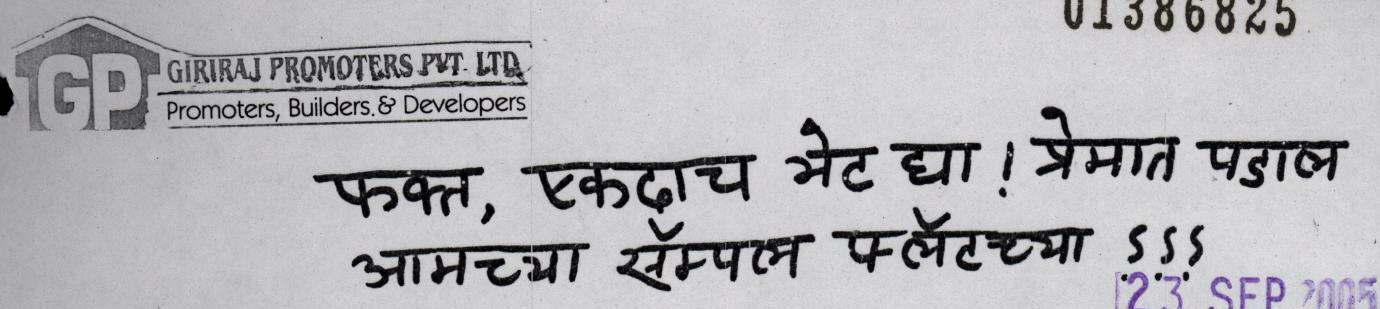 01386825
GP
GIRIRAJ PROMOTERS PVT. LTD.
Promoters, Builders. & Developers
फक्त, एकदाच भेट द्या! प्रेमात पडाल
आमच्या सॅम्पल फ्लॅटच्या ऽऽऽ
23 SEP 2005